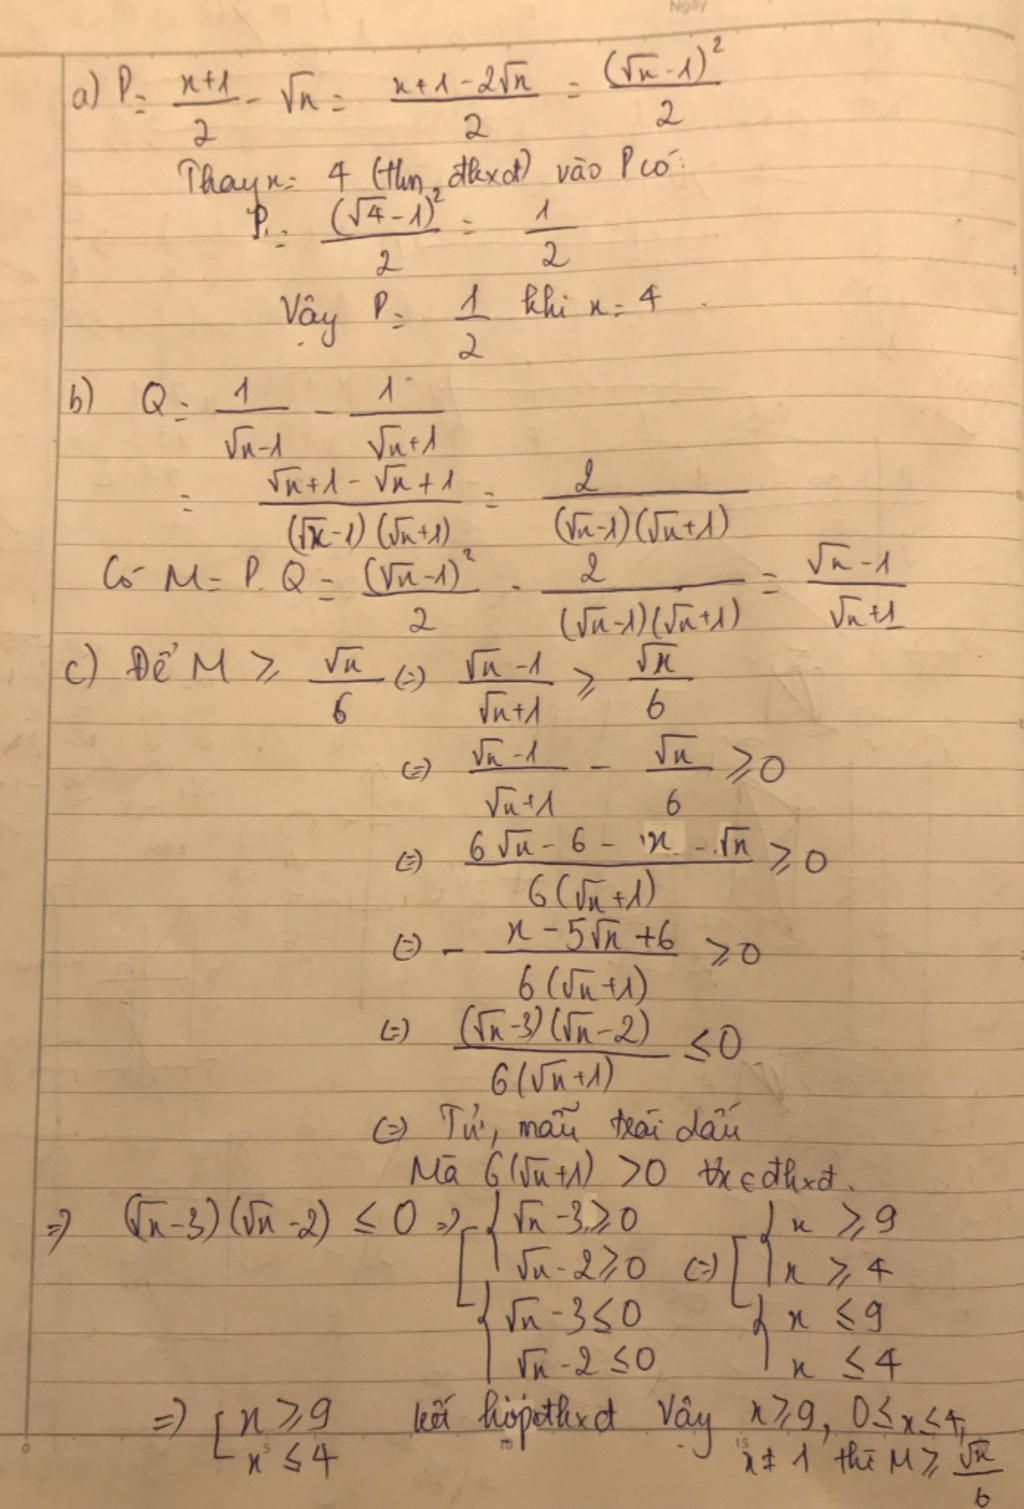 Ngày
a) P = (x+1)/2 - √x = (x+1-2√x)/2 = (√x-1)²/2
Thay x = 4 (tmn, đkxđ) vào P có:
P = (√4-1)²/2 = 1/2
Vậy P = 1/2 khi x = 4
b) Q = 1/(√x-1) - 1/(√x+1)
= (√x+1-√x+1)/((√x-1)(√x+1)) = 2/((√x-1)(√x+1))
Có M = P.Q = (√x-1)²/2 . 2/((√x-1)(√x+1)) = (√x-1)/(√x+1)
c) Để M ≥ √x/6 (=) (√x-1)/(√x+1) ≥ √x/6
(=) (√x-1)/(√x+1) - √x/6 ≥ 0
(=) (6√x-6-x-√x)/(6(√x+1)) ≥ 0
(=) - (x-5√x+6)/(6(√x+1)) ≥ 0
(=) (√x-3)(√x-2)/(6(√x+1)) ≤ 0
(=) Tử, mẫu trái dấu
Mà 6(√x+1) > 0 ∀x ∈ đkxđ.
=) (√x-3)(√x-2) ≤ 0 =) [ { √x-3 ≥ 0 [ { x ≥ 9
√x-2 ≥ 0 (=) x ≥ 4
{ √x-3 ≤ 0 { x ≤ 9
√x-2 ≤ 0 x ≤ 4
=) [ x ≥ 9 kết hợp đkxđ Vậy x ≥ 9, 0 ≤ x ≤ 4,
x ≤ 4 x ≠ 1 thì M ≥ √x/6
0 5 10 15